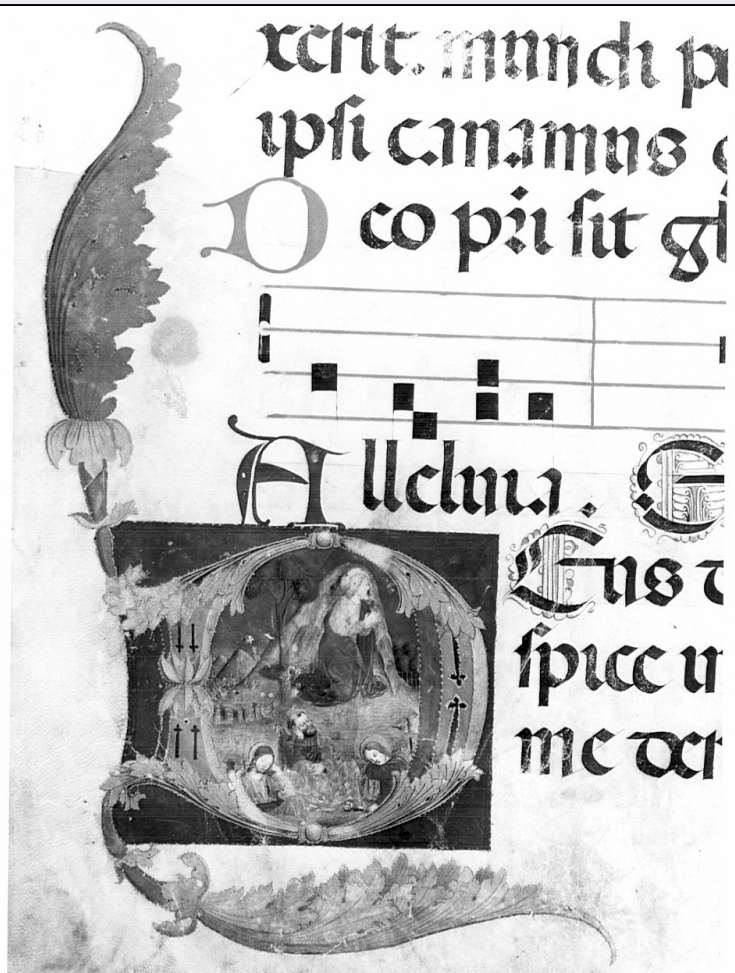 xerit. mundi p
ipsi canamus g
Deo pri sit gl
Alleluia. E
Deus De
spice in
me der